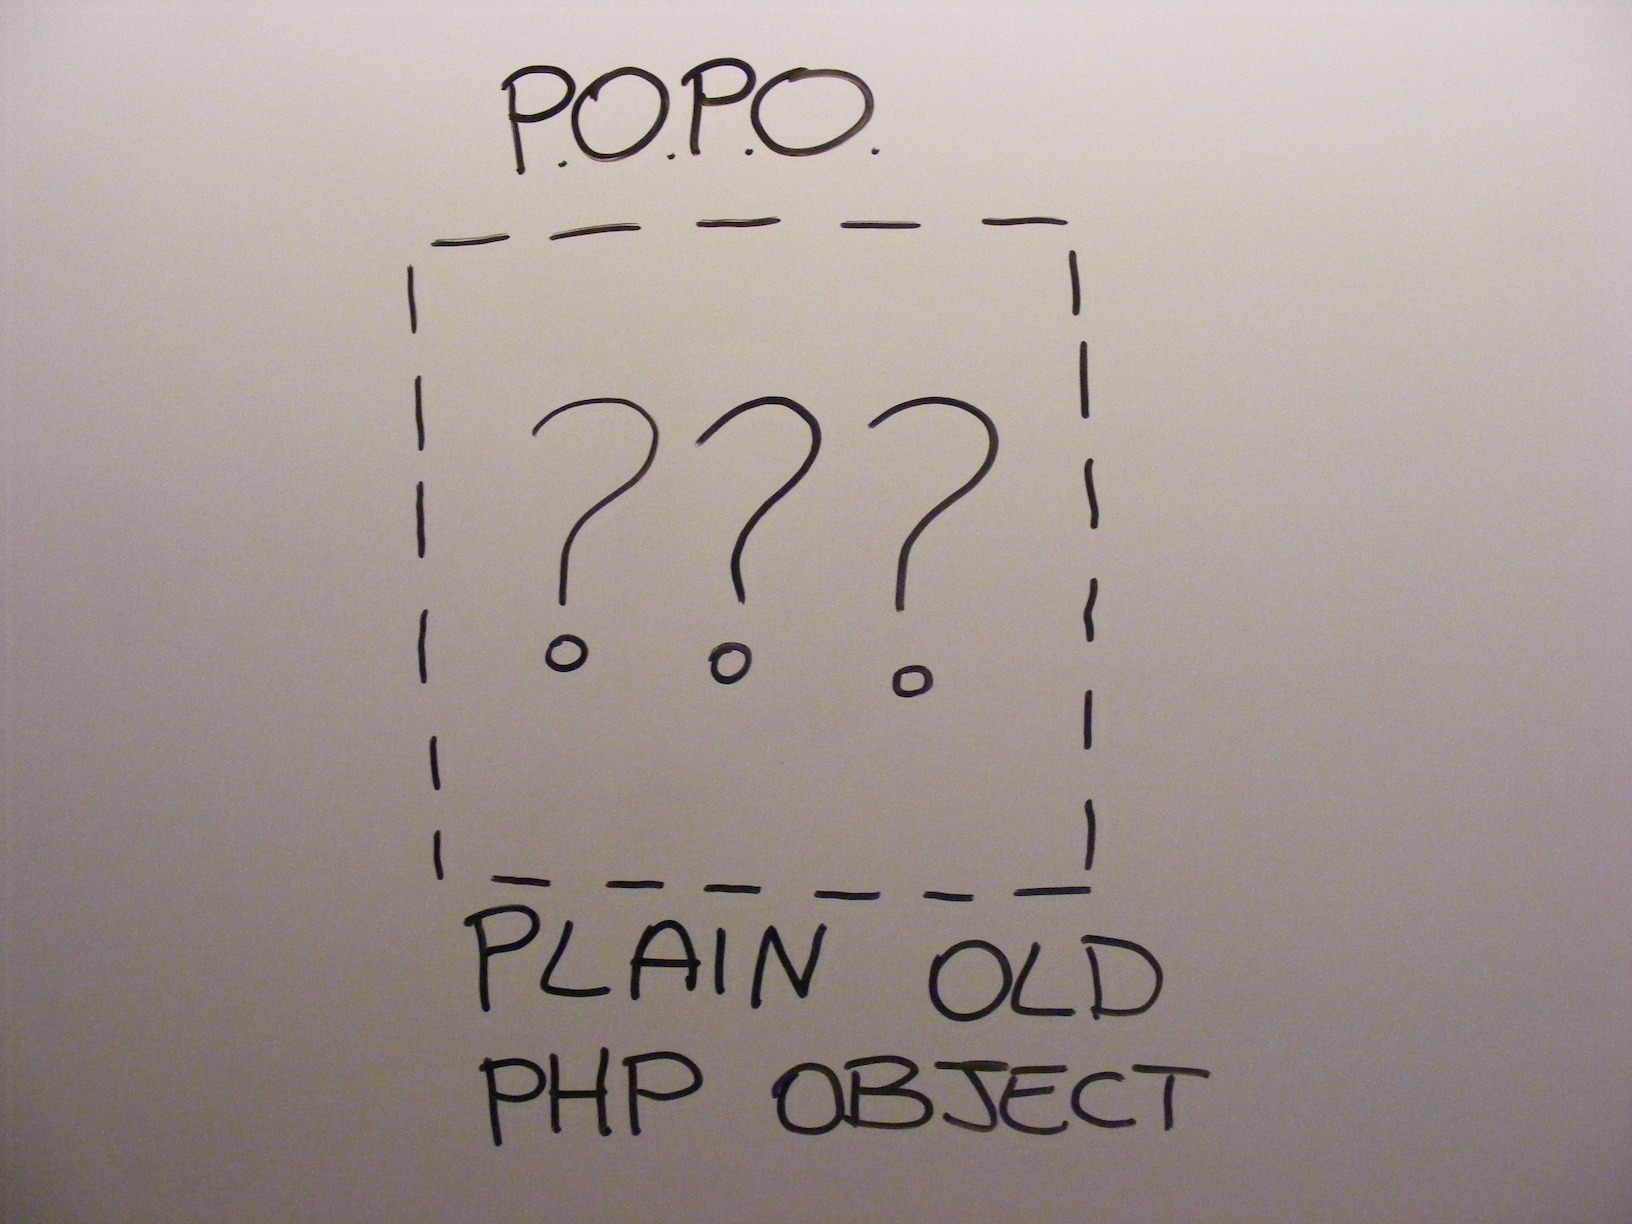 P.O.P.O.
???
PLAIN OLD
PHP OBJECT